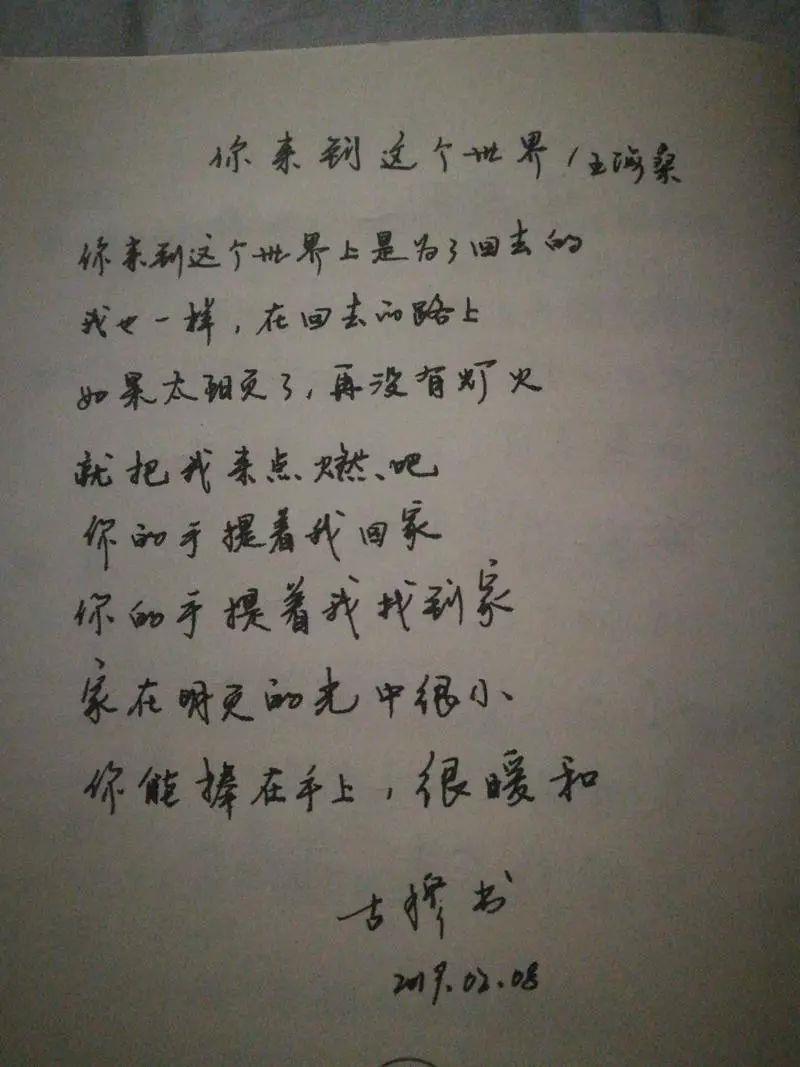 你来到这个世界/王海桑
你来到这个世界上是为了回去的
我也一样，在回去的路上
如果太阳灭了，再没有灯火
就把我来点燃吧
你的手提着我回家
你的手提着我找到家
家在明灭的光中很小
你能捧在手上，很暖和
古稀书
2019.02.08